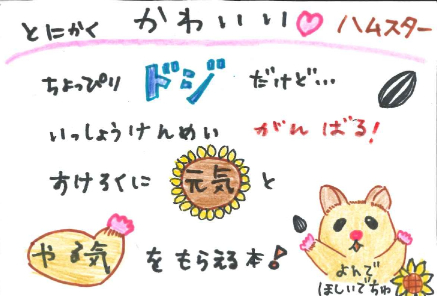 とにかく かわいい♡ ハムスター
ちょっぴり ドジ だけど…
いっしょうけんめい がんばる!
すけろくに 元気 と
やる気 をもらえる本!
よんで
ほしいでちゅ